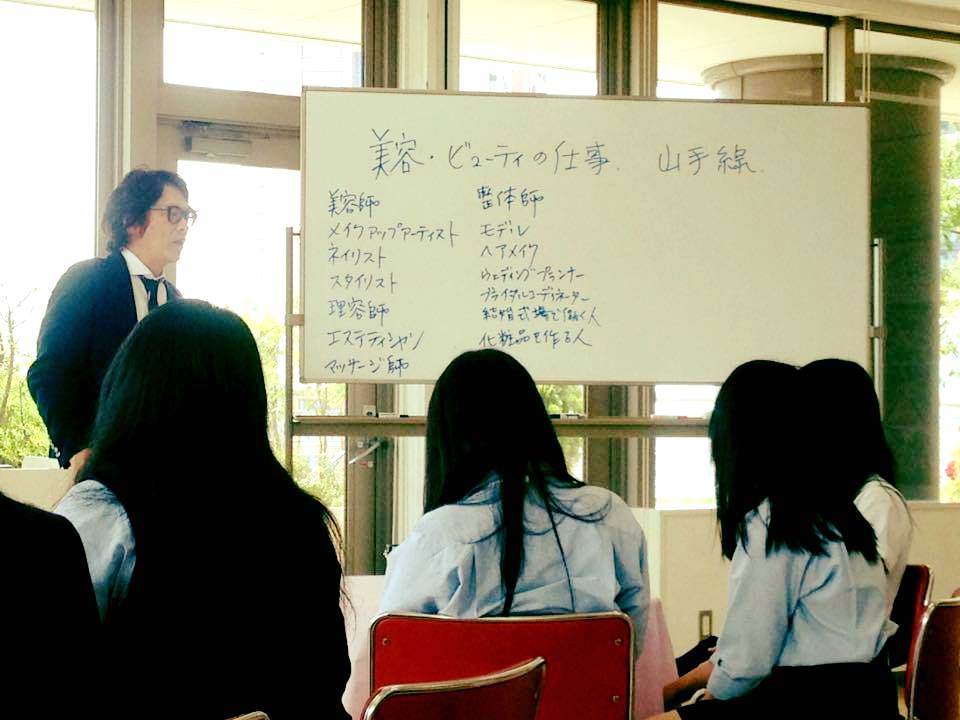 美容・ビューティの仕事. 山手線.
美容師
メイクアップアーティスト
ネイリスト
スタイリスト
理容師
エステティシャン
マッサージ師
整体師
モデル
ヘアメイク
ウェディングプランナー
ブライダルコーディネーター
結婚式場で働く人
化粧品を作る人